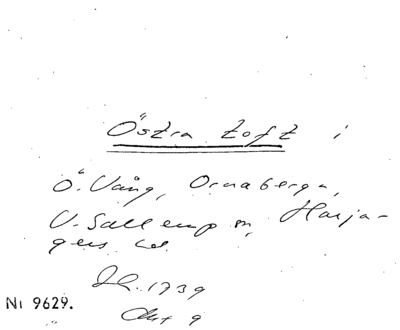 Östra toft i
Ö. Vång, Ormaberga,
V. Sallerup sn, Harja-
gers hd.
Lh. 1739
Akt 9
Nr 9629.